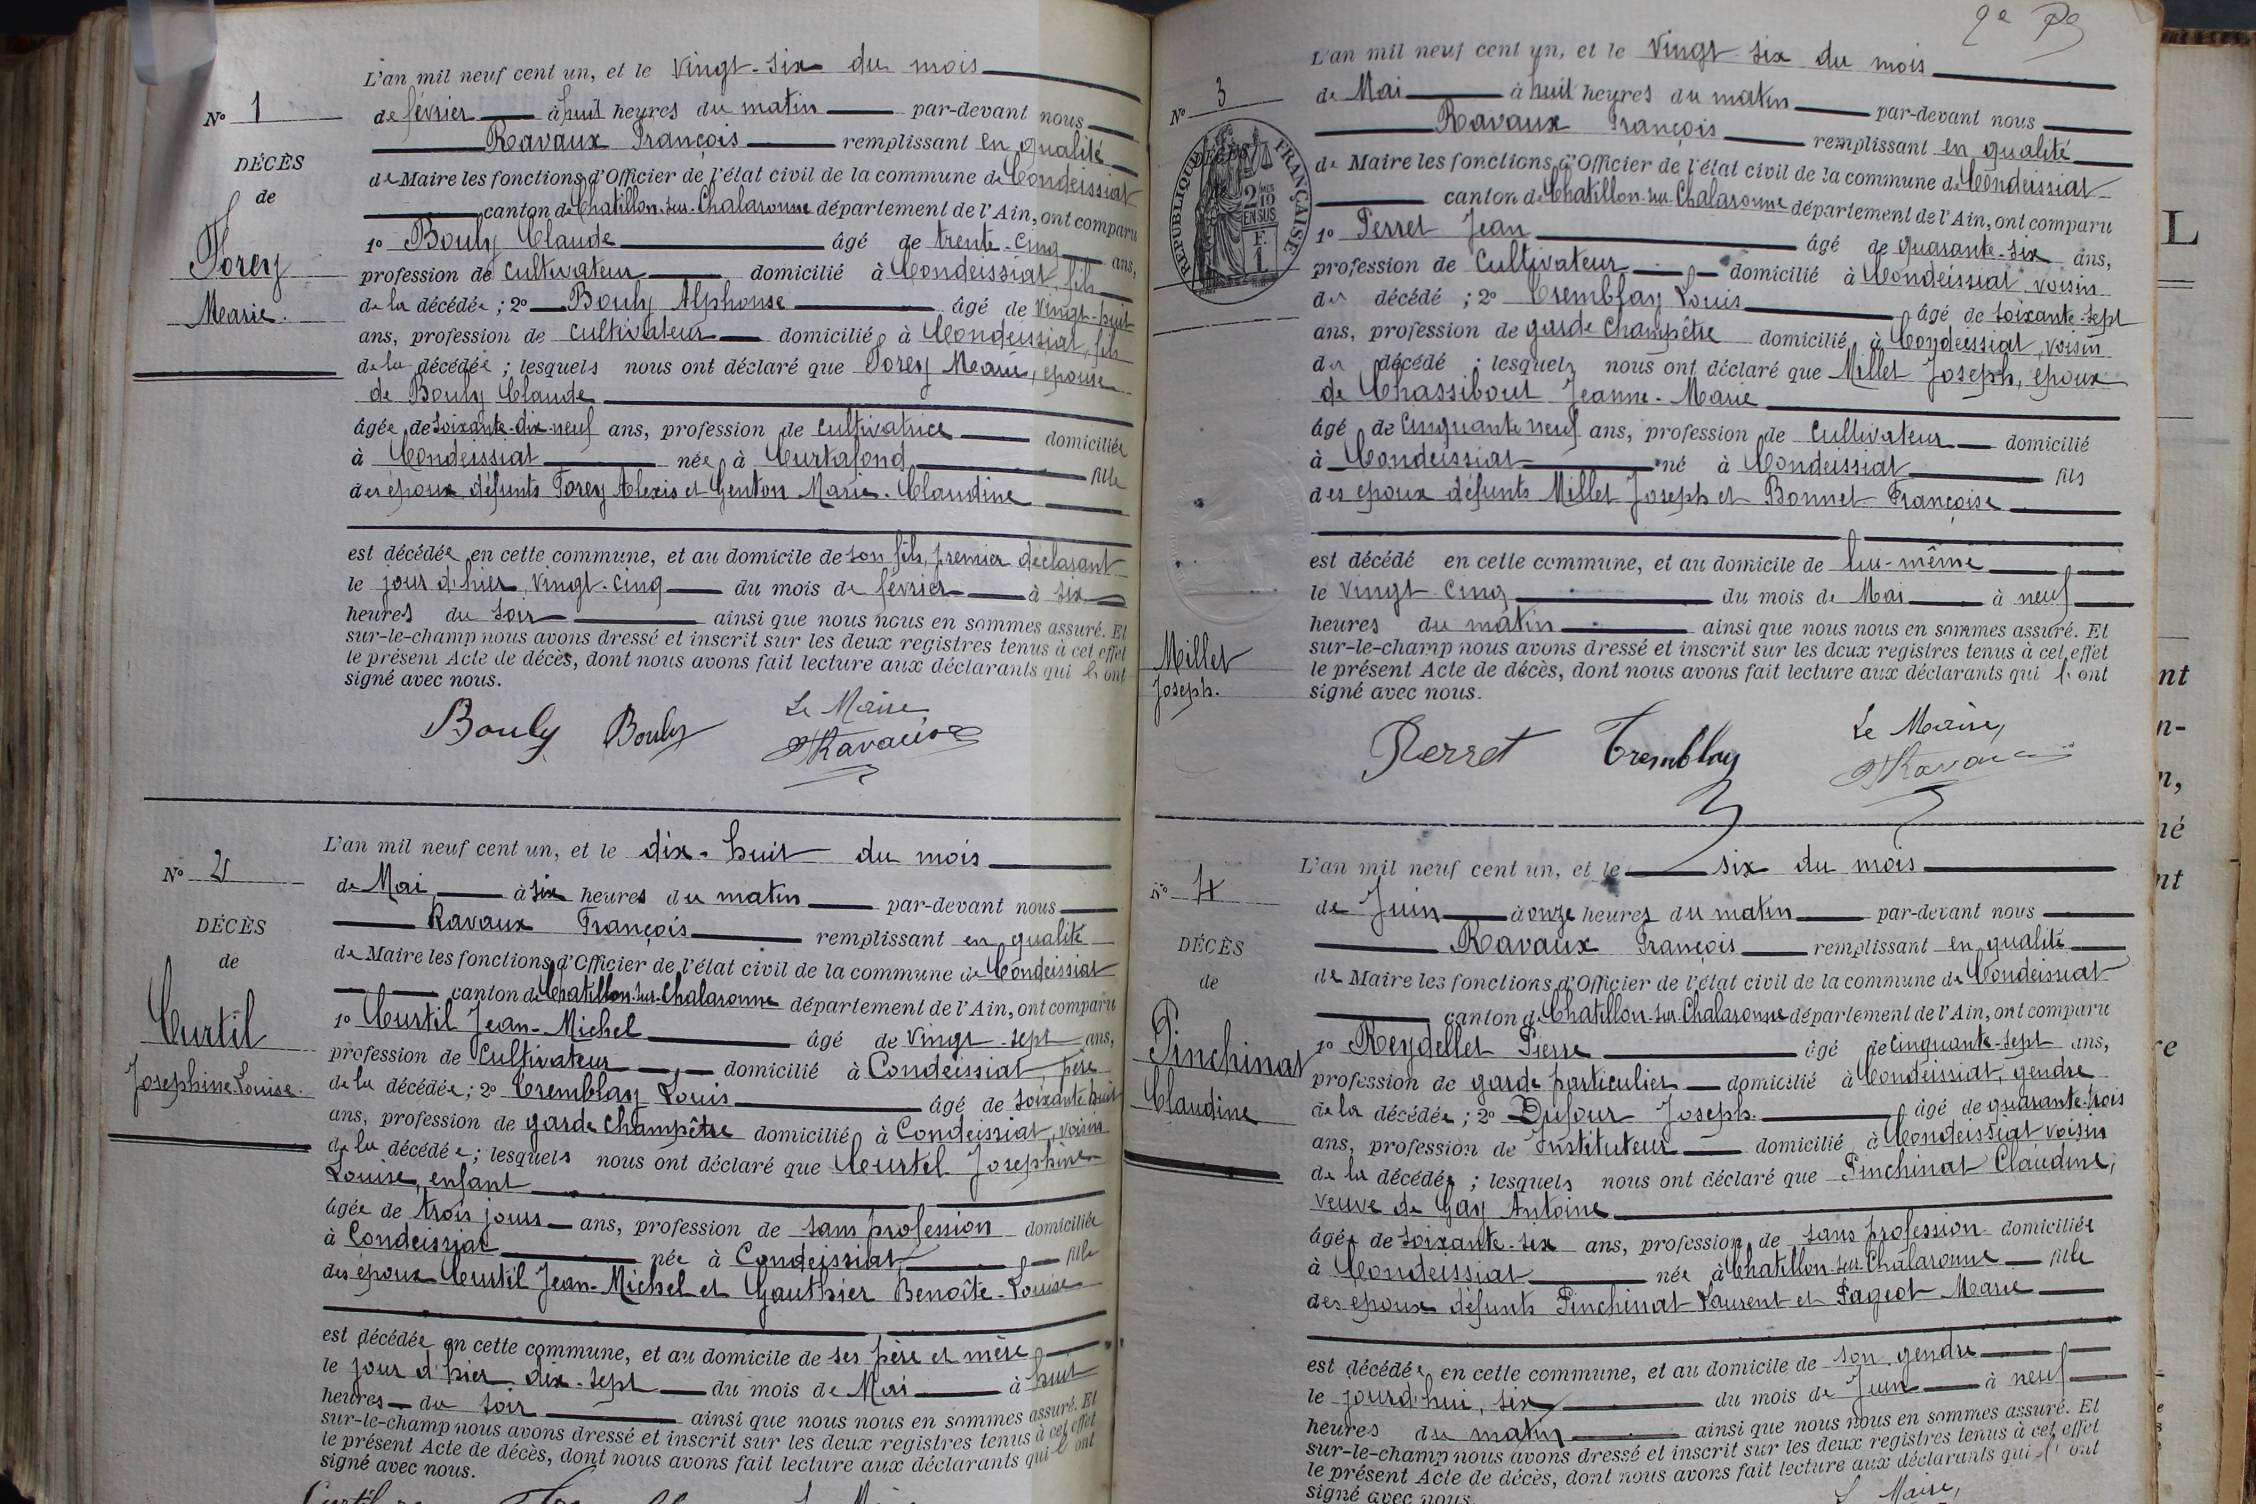 L'an mil neuf cent un, et le vingt-six du mois
Nº 1
de février à huit heures du matin par-devant nous
Ravaux François remplissant en qualité
DÉCÈS
de Maire les fonctions d'Officier de l'état civil de la commune de Condeissiat
de
canton de Chatillon-sur-Chalaronne département de l'Ain, ont comparu
1º Bouly Claude âgé de trente-cinq ans,
Forey
profession de cultivateur domicilié à Condeissiat, fils
Marie.
de la décédée ; 2º Bouly Alphonse âgé de vingt-huit
ans, profession de cultivateur domicilié à Condeissiat, fils
de la décédée ; lesquels nous ont déclaré que Forey Marie, épouse
de Bouly Claude
âgée de soixante-dix-neuf ans, profession de cultivatrice domiciliée
à Condeissiat née à Curtafond fille
des époux défunts Forey Alexis et Genton Marie-Claudine
est décédée en cette commune, et au domicile de son fils, premier déclarant
le jour d'hier, vingt-cinq du mois de février à six
heures du soir ainsi que nous nous en sommes assuré. Et
sur-le-champ nous avons dressé et inscrit sur les deux registres tenus à cet effet
le présent Acte de décès, dont nous avons fait lecture aux déclarants qui l'ont
signé avec nous.
Le Maire
Bouly Bouly Ravaux
L'an mil neuf cent un, et le dix-huit du mois
Nº 2
de Mai à six heures du matin par-devant nous
Ravaux François remplissant en qualité
DÉCÈS
de Maire les fonctions d'Officier de l'état civil de la commune de Condeissiat
de
canton de Chatillon-sur-Chalaronne département de l'Ain, ont comparu
1º Curtil Jean-Michel âgé de vingt-sept ans,
Curtil
profession de cultivateur domicilié à Condeissiat, père
Josephine Louise.
de la décédée ; 2º Tremblay Louis âgé de soixante-huit
ans, profession de garde champêtre domicilié à Condeissiat, voisin
de la décédée ; lesquels nous ont déclaré que Curtil Josephine
Louise, enfant
âgée de trois jours ans, profession de sans profession domiciliée
à Condeissiat née à Condeissiat, fille
des époux Curtil Jean-Michel et Gauthier Benoîte-Louise
est décédée en cette commune, et au domicile de ses père et mère
le jour d'hier dix-sept du mois de Mai à huit
heures du soir ainsi que nous nous en sommes assuré. Et
sur-le-champ nous avons dressé et inscrit sur les deux registres tenus à cet effet
le présent Acte de décès, dont nous avons fait lecture aux déclarants qui l'ont
signé avec nous.
2e
L'an mil neuf cent un, et le vingt six du mois
Nº 3
de Mai à huit heures du matin par-devant nous
Ravaux François remplissant en qualité
RÉPUBLIQUE FRANÇAISE
2 10 EN SUS
F. 1
de Maire les fonctions d'Officier de l'état civil de la commune de Condeissiat
canton de Chatillon-sur-Chalaronne département de l'Ain, ont comparu
1º Perret Jean âgé de quarante-six ans,
profession de cultivateur domicilié à Condeissiat, voisin
du décédé ; 2º Tremblay Louis âgé de soixante-sept
ans, profession de garde champêtre domicilié à Condeissiat, voisin
du décédé ; lesquels nous ont déclaré que Millet Joseph, époux
de Chassibout Jeanne-Marie
âgé de cinquante neuf ans, profession de cultivateur domicilié
à Condeissiat né à Condeissiat fils
des époux défunts Millet Joseph et Bonnet Françoise
est décédé en cette commune, et au domicile de lui-même
le vingt cinq du mois de Mai à neuf
heures du matin ainsi que nous nous en sommes assuré. Et
sur-le-champ nous avons dressé et inscrit sur les deux registres tenus à cet effet
Millet
le présent Acte de décès, dont nous avons fait lecture aux déclarants qui l'ont
Joseph.
signé avec nous.
Le Maire,
Perret Tremblay Ravaux
L'an mil neuf cent un, et le six du mois
Nº 4
de Juin à onze heures du matin par-devant nous
Ravaux François remplissant en qualité
DÉCÈS
de Maire les fonctions d'Officier de l'état civil de la commune de Condeissiat
de
canton de Chatillon-sur-Chalaronne département de l'Ain, ont comparu
Pinchinat
1º Reydellet Pierre âgé de cinquante-sept ans,
profession de garde particulier domicilié à Condeissiat, gendre
Claudine
de la décédée ; 2º Dufour Joseph. âgé de quarante-trois
ans, profession de Instituteur domicilié à Condeissiat voisin
de la décédée ; lesquels nous ont déclaré que Pinchinat Claudine,
veuve de Gay Antoine
âgée de soixante-six ans, profession de sans profession domiciliée
à Condeissiat née à Chatillon-sur-Chalaronne fille
des époux défunts Pinchinat Laurent et Pageot Marie
est décédée en cette commune, et au domicile de son gendre
le jourd'hui, six du mois de Juin à neuf
heures du matin ainsi que nous nous en sommes assuré. Et
sur-le-champ nous avons dressé et inscrit sur les deux registres tenus à cet effet
le présent Acte de décès, dont nous avons fait lecture aux déclarants qui l'ont
signé avec nous.
Le Maire,